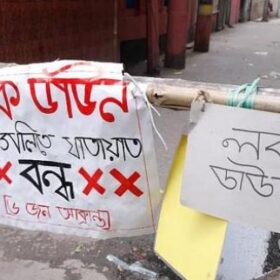 ক ডাউন
গলিতে যাতায়াত
× বন্ধ ××
[৬ জন আক্রান্ত]
লক
ডাউ